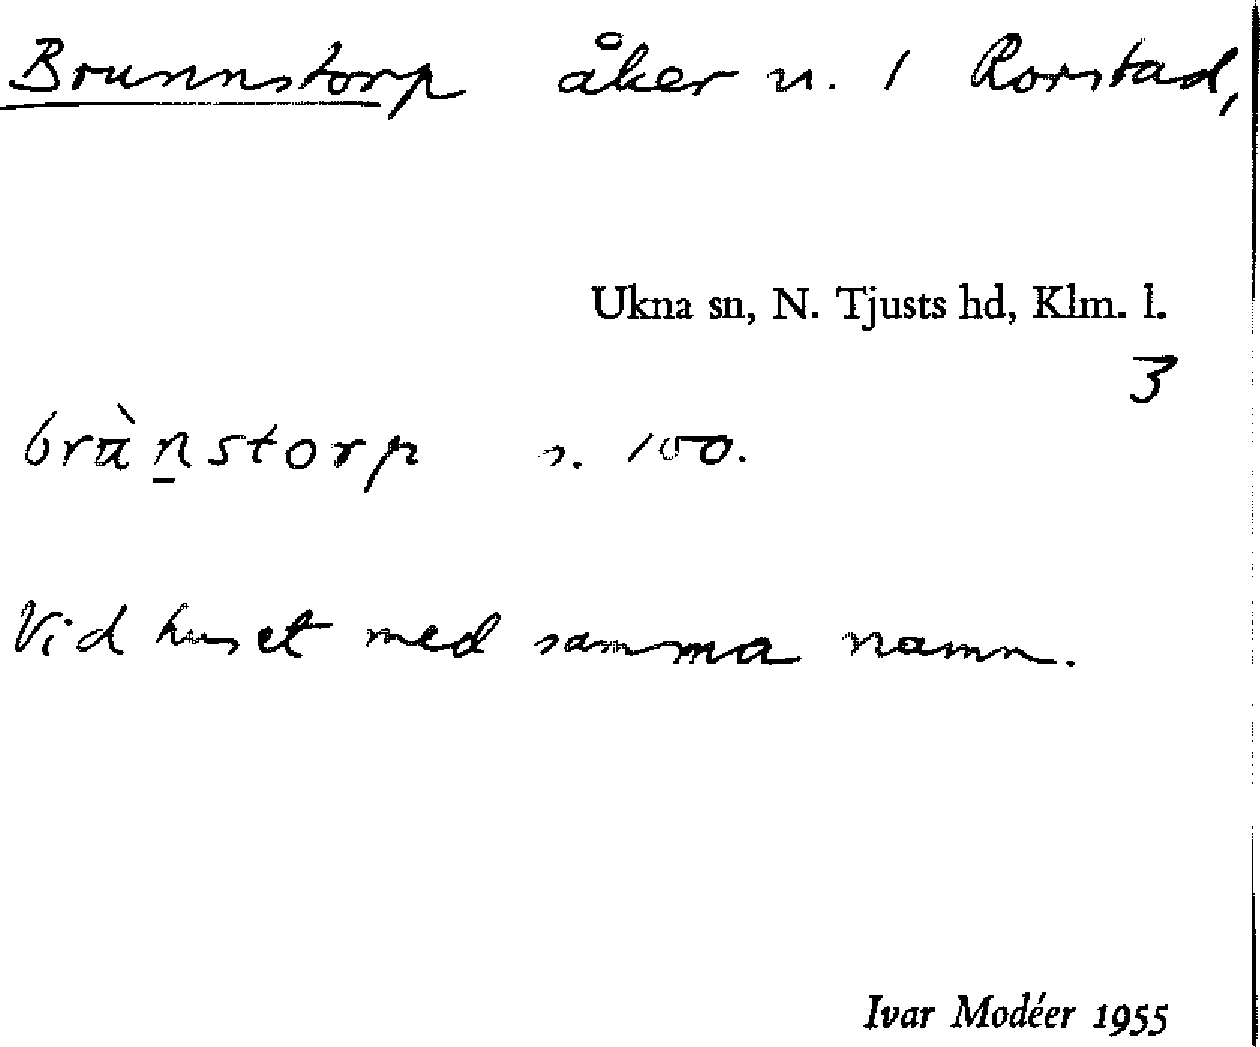 Brunnstorp åker n. 1 Rorstad,
Ukna sn, N. Tjusts hd, Klm. l.
3
s. 100.
Vid huset med samma namn.
Ivar Modéer 1955